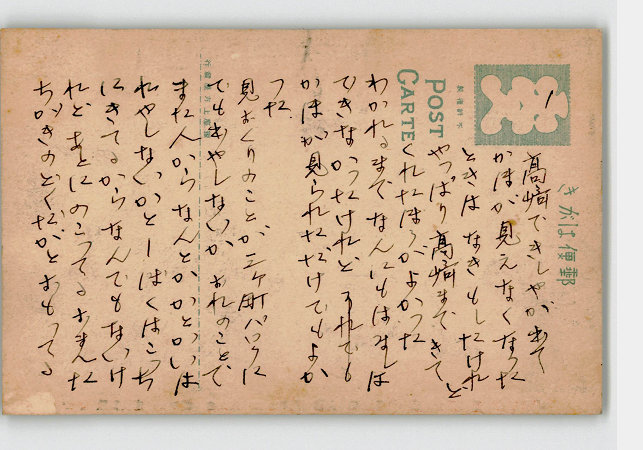 郵便はがき
POST CARTE
1
高崎できしやが出て
かほが見えなくなつた
ときは なきもしたけれど
やつぱり高崎まできて
くれたほうがよかつた
わかれるまでなんにもはなしは
できなかつたけれど それでも
かほが見られただけでもよか
つた
見おくりのことが 町 バロクに
でも おやしないか おれのことで
またんからなんとかかとかいは
れやしないかとーぼくはこつち
にきてるからなんでもないけ
れど あとにのこつてるおまんた
ちがきのどくだがとおもつてる